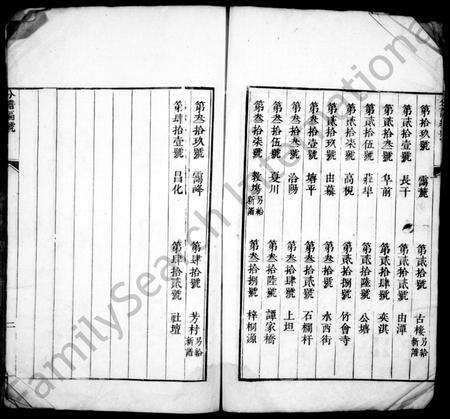 第拾玖號 霭㲄 第貳拾號 古棧 另給新譜
第貳拾壹號 長干 第貳拾貳號 由潭
第貳拾叁號 阜前 第貳拾肆號 奕淇
第貳拾伍號 莊埠 第貳拾陸號 公塘
第貳拾柒號 高梘 第貳拾捌號 竹會寺
第貳拾玖號 由葉 第叁拾號 水西街
第叁拾壹號 塘平 第叁拾貳號 石欄杆
第叁拾叁號 洽陽 第叁拾肆號 上坦
第叁拾伍號 夏川 第叁拾陸號 譚家橋
第叁拾柒號 教塲 另給新譜 第叁拾捌號 梓桐源
第叁拾玖號 霭峰 第肆拾號 芳村 另給新譜
第肆拾壹號 昌化 第肆拾貳號 社壇
分譜編號
二
FamilySearch International